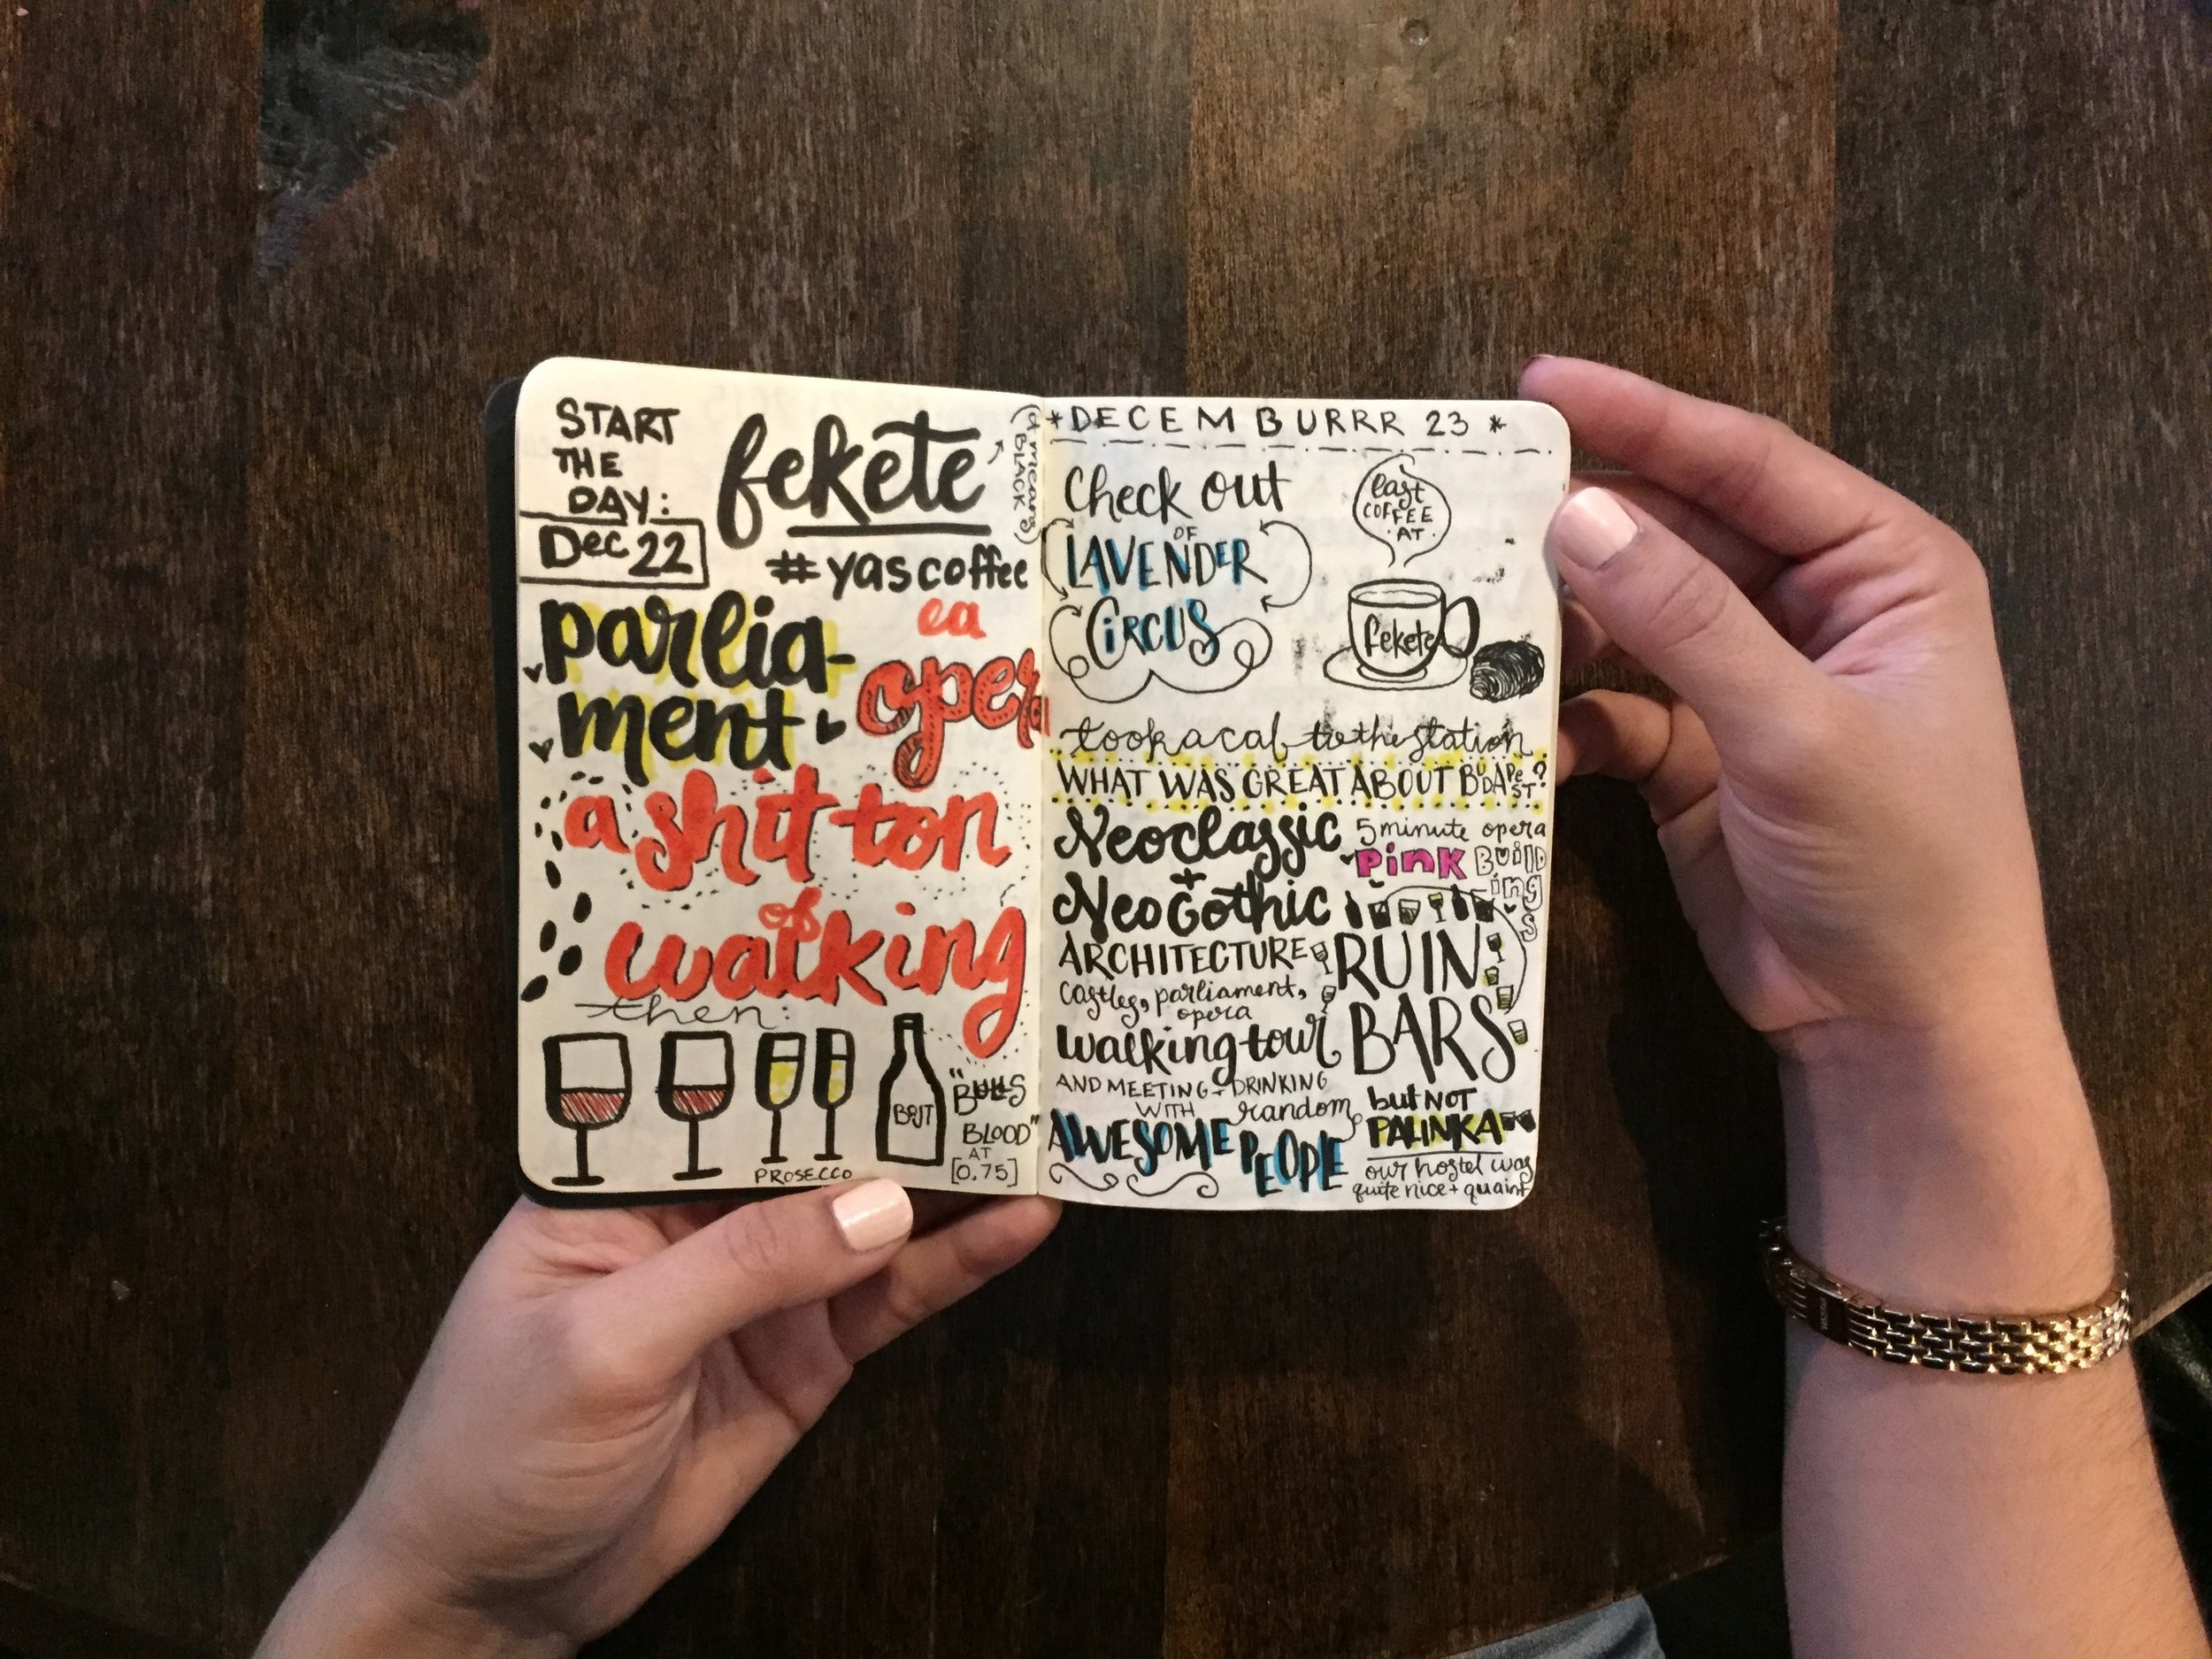 START
THE
DAY:
Dec 22
fekete
(it means
BLACK)
#yascoffee
parlia-
ment
ea
opera
a shit ton
of
walking
then:
BRUT
PROSECCO
"BULLS
BLOOD"
AT
[0.75]
*DECEMBURRR 23*
Check out
OF
LAVENDER
CIRCUS
last
COFFEE
AT
fekete
took a cab to the station
WHAT WAS GREAT ABOUT BUDAPEST?
Neoclassic
+
NeoGothic
ARCHITECTURE
castles, parliament,
opera
walking tour
AND MEETING + DRINKING
WITH random
AWESOME PEOPLE
5 minute opera
Pink Build
ing
s
RUIN
BARS
but NOT
PALINKA
our hostel was
quite nice + quaint